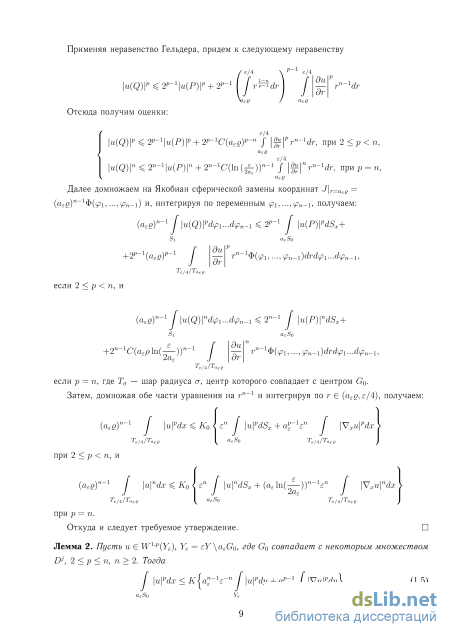 Применяя неравенство Гельдера, придем к следующему неравенству
|u(Q)|^p ⩽ 2^{p−1}|u(P)|^p + 2^{p−1} ( ∫_{a_ε ϱ}^{ε/4} r^{\frac{1−n}{p−1}} dr )^{p−1} ∫_{a_ε ϱ}^{ε/4} |∂u/∂r|^p r^{n−1} dr
Отсюда получим оценки:
|u(Q)|^p ⩽ 2^{p−1}|u(P)|^p + 2^{p−1}C(a_ε ϱ)^{p−n} ∫_{a_ε ϱ}^{ε/4} |∂u/∂r|^p r^{n−1} dr, при 2 ≤ p < n,
|u(Q)|^n ⩽ 2^{n−1}|u(P)|^n + 2^{n−1}C(ln(ε/2a_ε))^{n−1} ∫_{a_ε ϱ}^{ε/4} |∂u/∂r|^n r^{n−1} dr, при p = n,
Далее домножаем на Якобиан сферической замены координат J|_{r=a_ε ϱ} =
(a_ε ϱ)^{n−1}Φ(φ_1, ..., φ_{n−1}) и, интегрируя по переменным φ_1, ..., φ_{n−1}, получаем:
(a_ε ϱ)^{n−1} ∫_{S_1} |u(Q)|^p dφ_1...dφ_{n−1} ⩽ 2^{p−1} ∫_{a_ε S_0} |u(P)|^p dS_x+
+2^{p−1}(a_ε ϱ)^{p−1} ∫_{T_{ε/4}/T_{a_ε ϱ}} |∂u/∂r|^p r^{n−1}Φ(φ_1, ..., φ_{n−1})drdφ_1...dφ_{n−1},
если 2 ≤ p < n, и
(a_ε ϱ)^{n−1} ∫_{S_1} |u(Q)|^n dφ_1...dφ_{n−1} ⩽ 2^{n−1} ∫_{a_ε S_0} |u(P)|^n dS_x+
+2^{n−1}C(a_ε ρ ln(ε/2a_ε))^{n−1} ∫_{T_{ε/4}/T_{a_ε ϱ}} |∂u/∂r|^n r^{n−1}Φ(φ_1, ..., φ_{n−1})drdφ_1...dφ_{n−1},
если p = n, где T_σ — шар радиуса σ, центр которого совпадает с центром G_0.
Затем, домножая обе части уравнения на r^{n−1} и интегрируя по r ∈ (a_ε ϱ, ε/4), получаем:
(a_ε ϱ)^{n−1} ∫_{T_{ε/4}/T_{a_ε ϱ}} |u|^p dx ⩽ K_0 { ε^n ∫_{a_ε S_0} |u|^p dS_x + a_ε^{p−1} ε^n ∫_{T_{ε/4}/T_{a_ε ϱ}} |∇_x u|^p dx }
при 2 ≤ p < n, и
(a_ε ϱ)^{n−1} ∫_{T_{ε/4}/T_{a_ε ϱ}} |u|^n dx ⩽ K_0 { ε^n ∫_{a_ε S_0} |u|^n dS_x + (a_ε ln(ε/2a_ε))^{n−1} ε^n ∫_{T_{ε/4}/T_{a_ε ϱ}} |∇_x u|^n dx }
при p = n.
Откуда и следует требуемое утверждение. □
Лемма 2. Пусть u ∈ W^{1,p}(Y_ε), Y_ε = εY \ a_ε G_0, где G_0 совпадает с некоторым множеством
D^j, 2 ≤ p ≤ n, n ≥ 2. Тогда
∫_{a_ε S_0} |u|^p dx ≤ K{ a_ε^{n−1} ε^{−n} ∫_{Y_ε} |u|^p dy + a_ε^{p−1} ∫ |∇u|^p dy } (1.5)
9
dslib.net
библиотека диссертаций